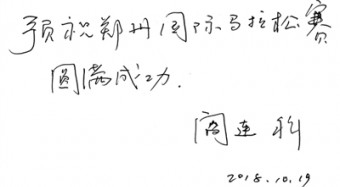 预祝郑州国际马拉松赛
圆满成功.
阎连科
2018.10.19